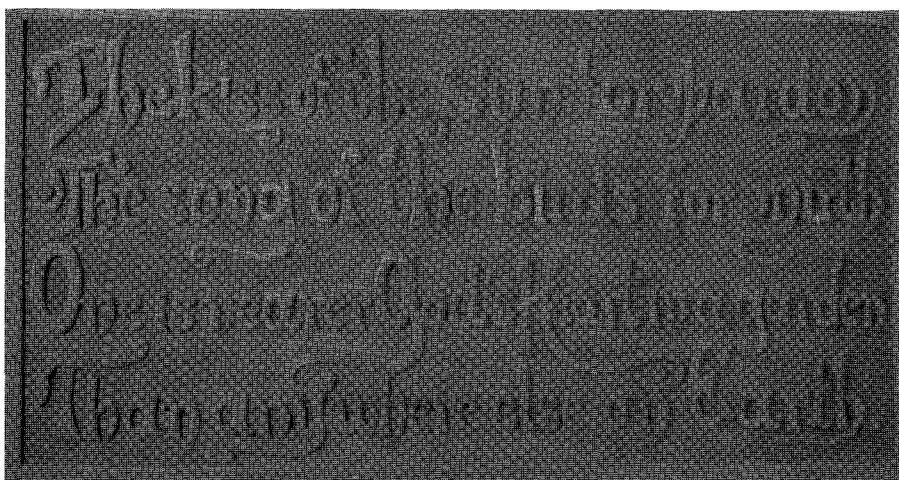 The kiss of the sun for pardon
The song of the birds for mirth
One is nearer God's Heart in a garden
Than anywhere else on Earth